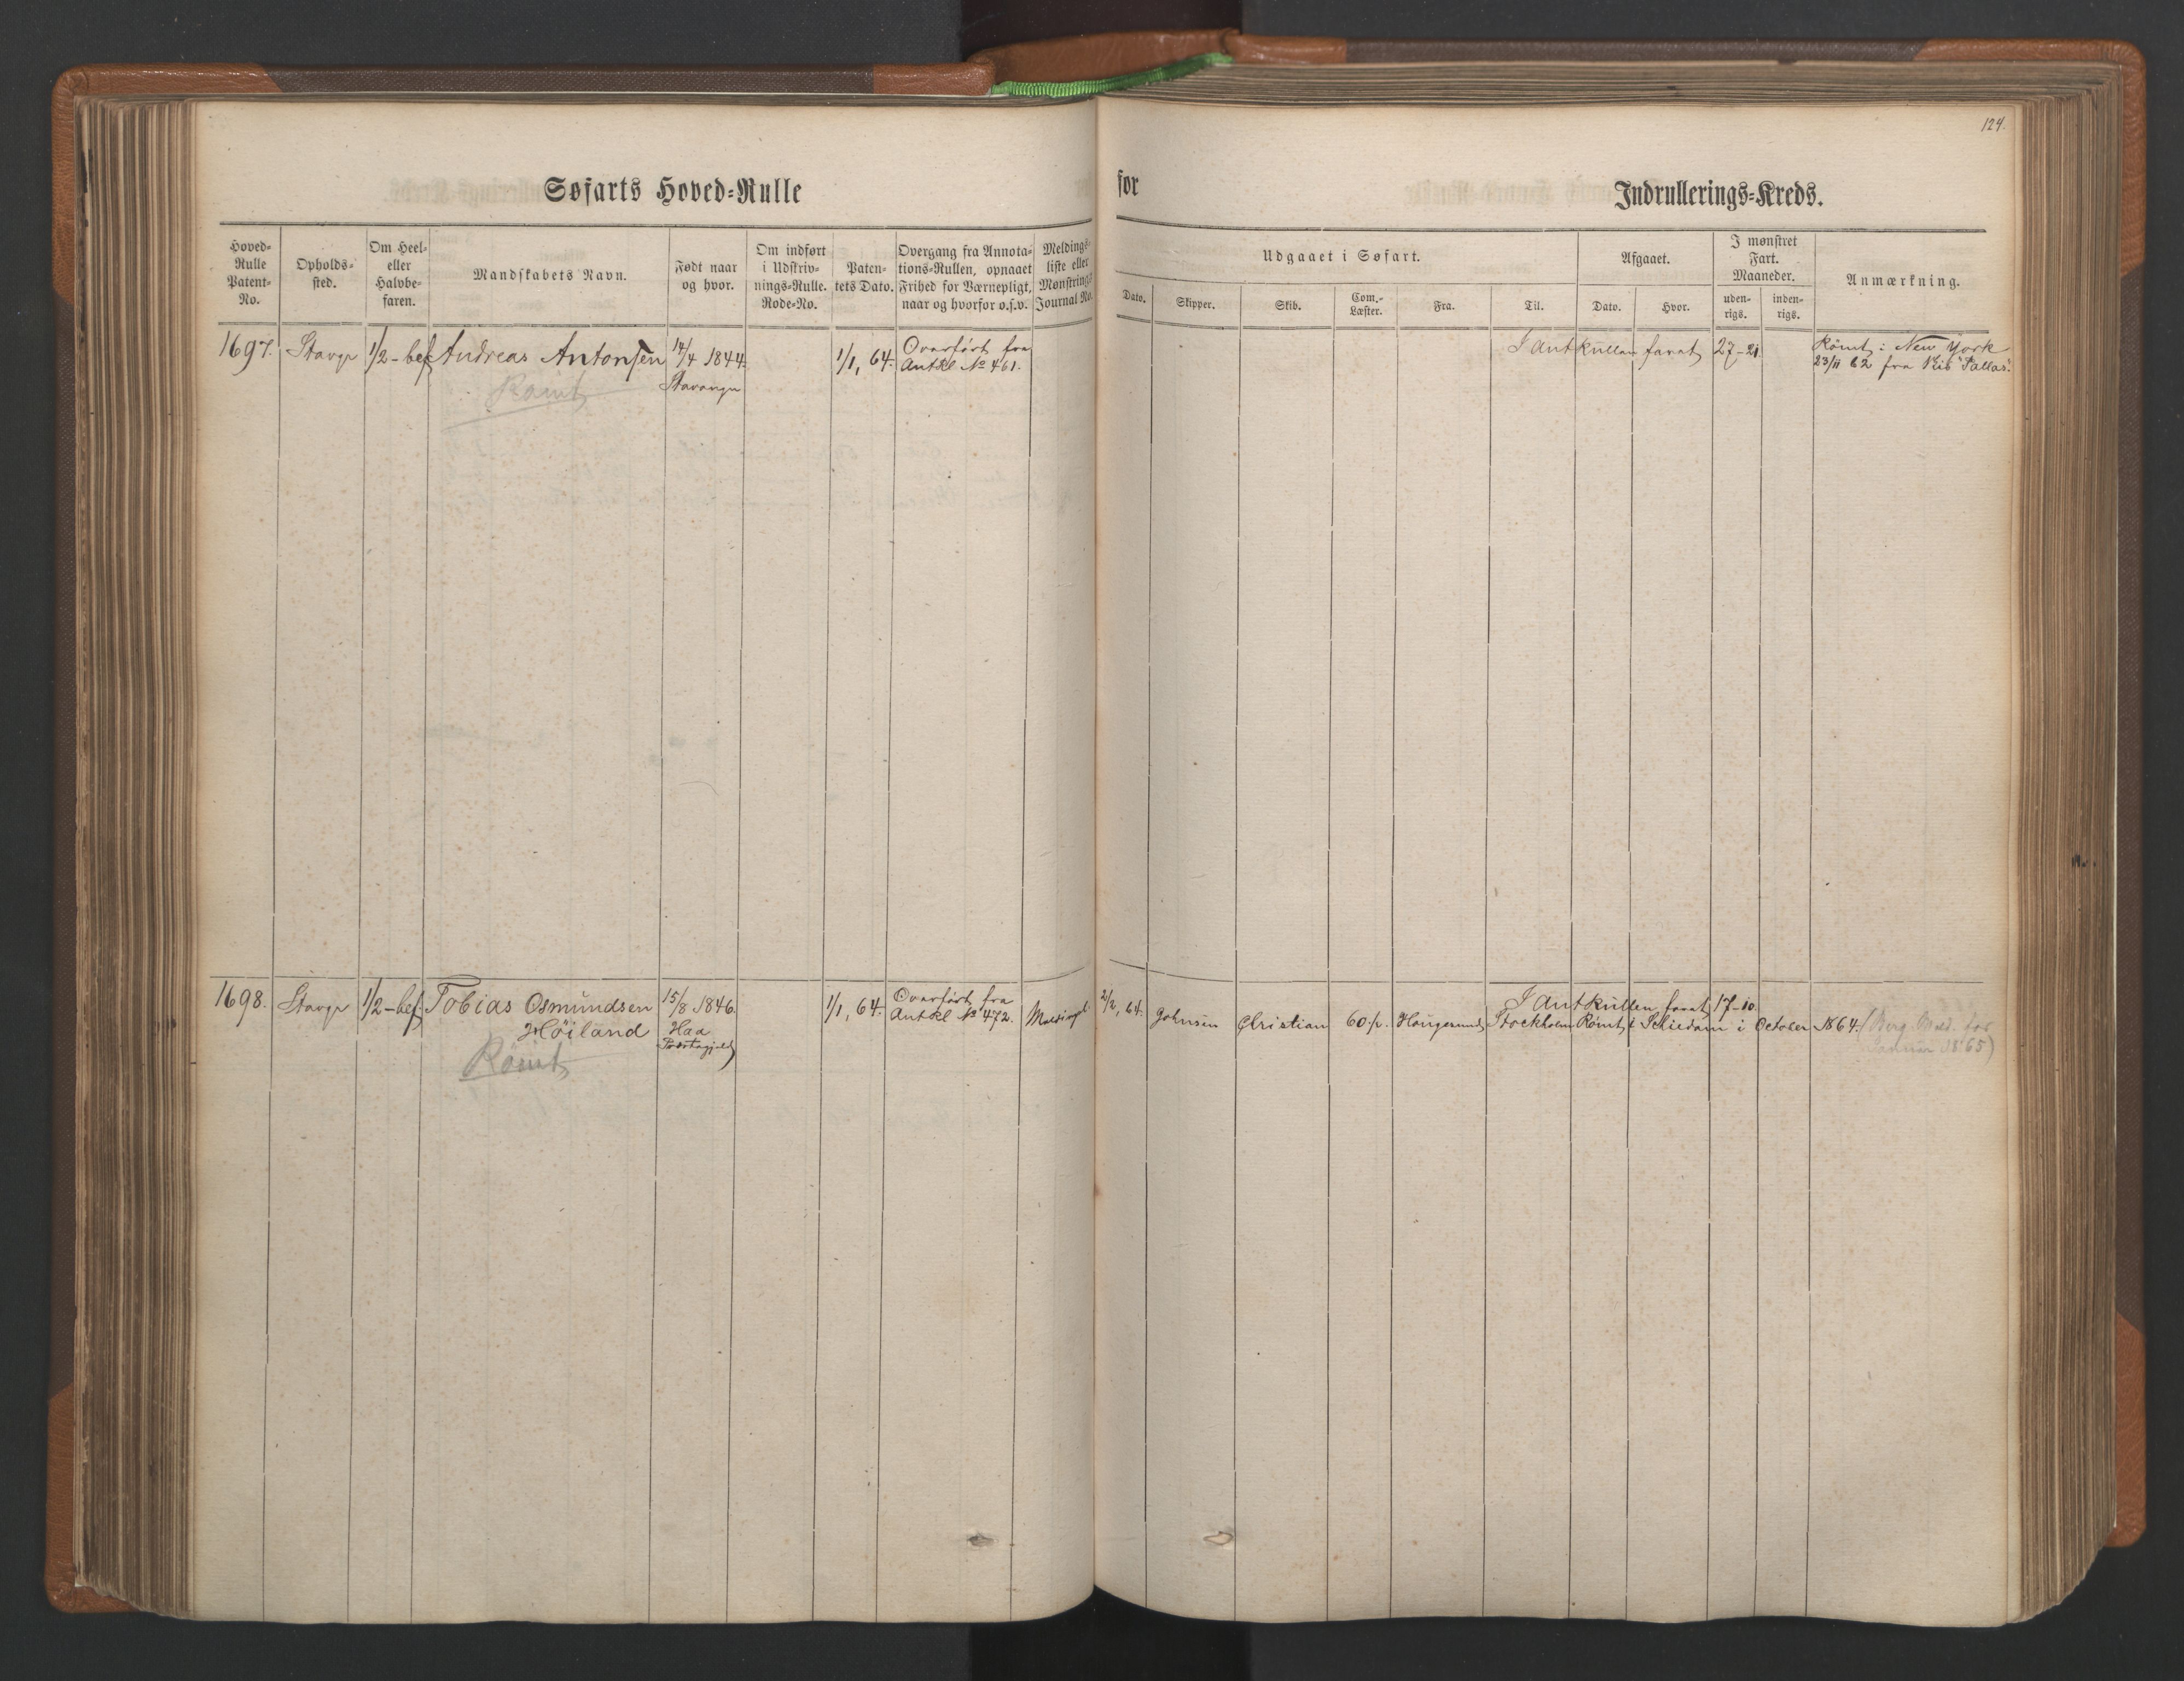 124.
Søfarts Hoved-Rulle
for
Indrullerings-Kreds.
Hoved-
Rulle
Patent-
No.
Opholds-
sted.
Om Heel-
eller
Halvbe-
faren.
Mandskabets Navn.
Født naar
og hvor.
Om indført
i Udskriv-
nings-Rulle.
Rode-No.
Paten-
tets Dato.
Overgang fra Annota-
tions-Rullen, opnaaet
Frihed for Værnepligt,
naar og hvorfor o.s.v.
Meldings-
liste eller
Mønstrings
Journal No.
Udgaaet i Søfart.
Dato.
Skipper.
Skib.
Com.-
Læster.
Fra.
Til.
Afgaaet.
Dato.
Hvor.
I mønstret
Fart.
Maaneder.
uden-
rigs.
inden-
rigs.
Anmærkning.
1697. Stavgr 1/2-bef Andreas Antonsen 14/4 1844. 1/1, 64. Overført fra
Stavanger AntRl No 461.
Rømt
I Antrullen farat 27-21. Rømt i New York
23/11 62 fra Skib "Pallas".
1698. Stavgr 1/2-bef. Tobias Osmundsen 15/8 1846. 1/1, 64. Overført fra
Høiland Haa AntRl No 472.
Præstegjeld
Rømt
2/2, 64. Johnsen Christian 60 1/2. Haugesund Stockholm
I Antrullen farat 17-10.
Rømt i Schiedam i October 1864. (Berg. Meld. for
Januar 1865)